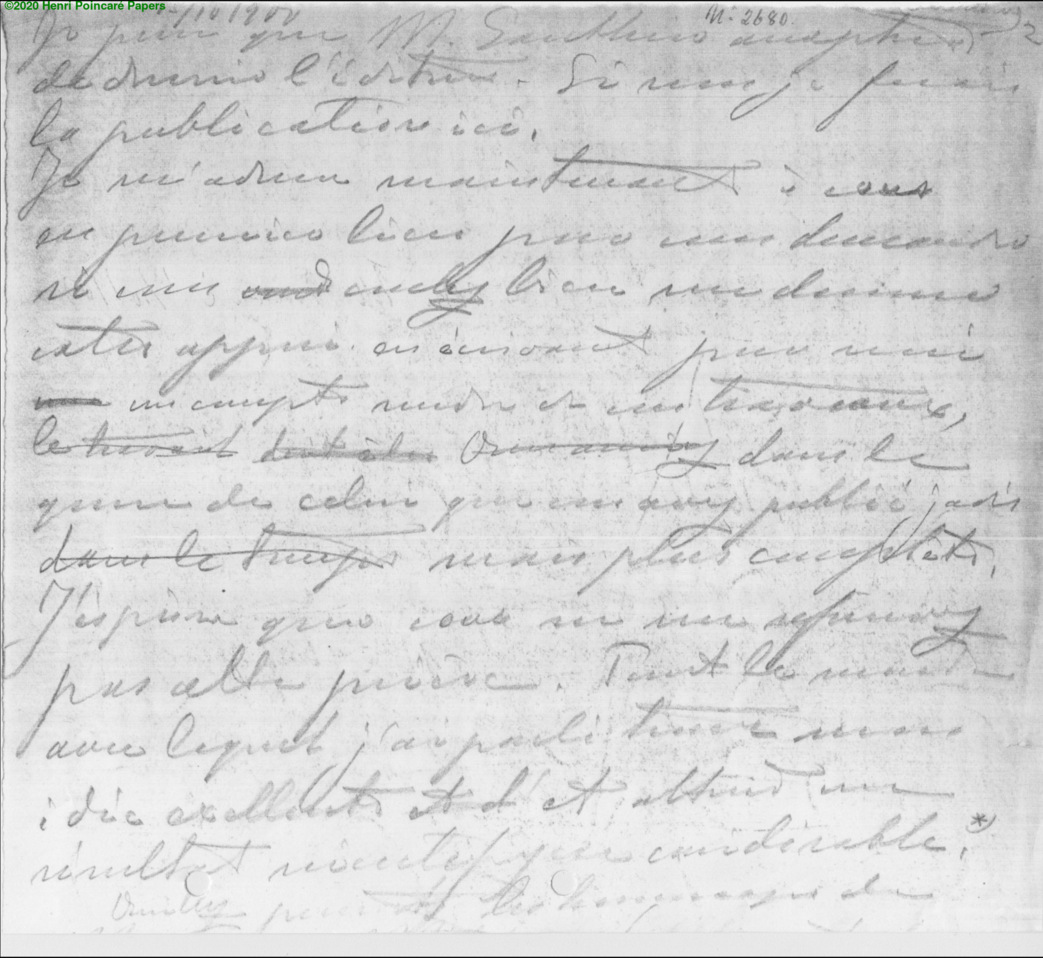 ©2020 Henri Poincaré Papers
/10 1900
N. 2680.
2
Je pense que M. Gauthier acceptera
de l'éditeur. Si non je ferais
la publication ici.
Je m'adresse maintenant à vous
en premier lieu pour vous demander
si vous voulez bien me donner
votre appui en écrivant pour moi
un compte rendu de vos travaux,
le travail dans le
genre de celui que vous avez publié jadis
dans le temps mais plus complète.
J'espère que vous ne me refuserez
pas cette prière. Tout le monde
avec lequel j'ai parlé trouve mon
idée excellente et et attend un
résultat scientifique considérable. *)
Veuillez les hommages de